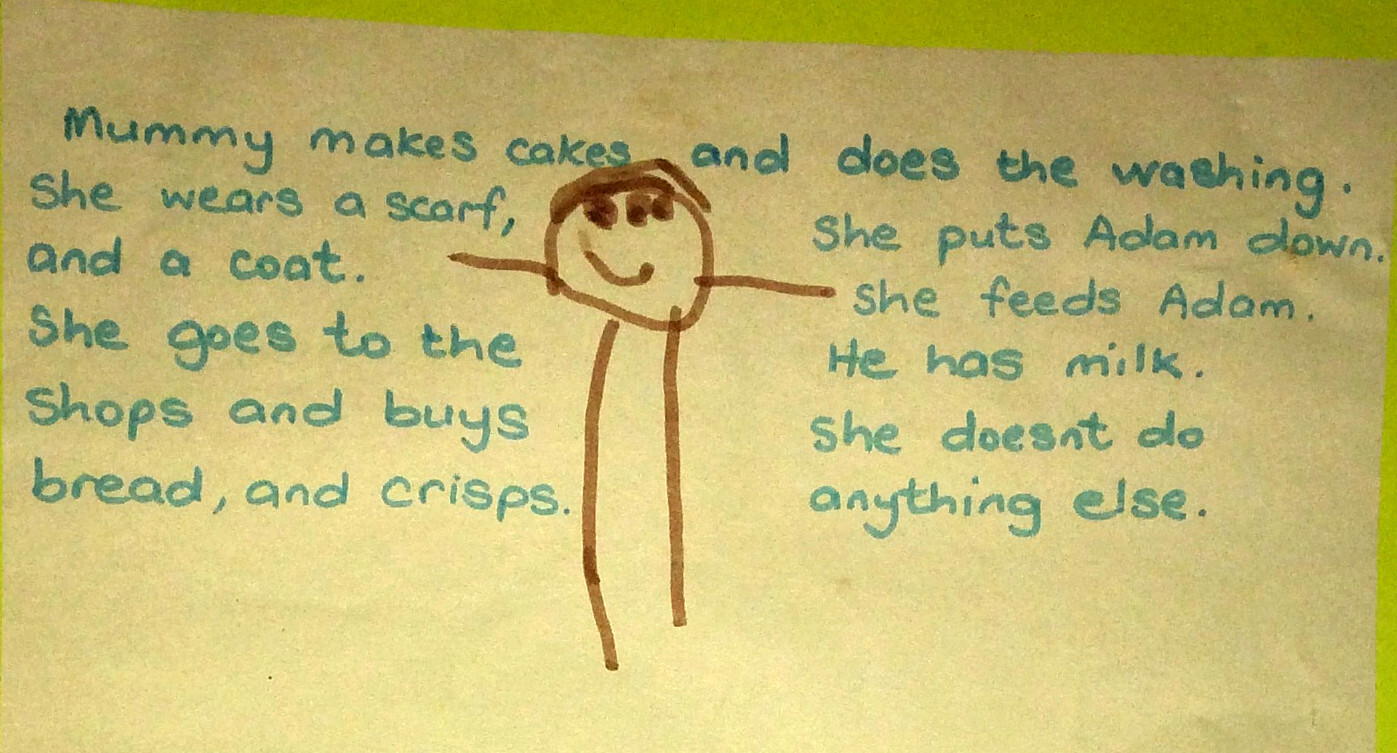 Mummy makes cakes and does the washing.
She wears a scarf,
and a coat.
She goes to the
shops and buys
bread, and crisps.
She puts Adam down.
She feeds Adam.
He has milk.
she doesnt do
anything else.